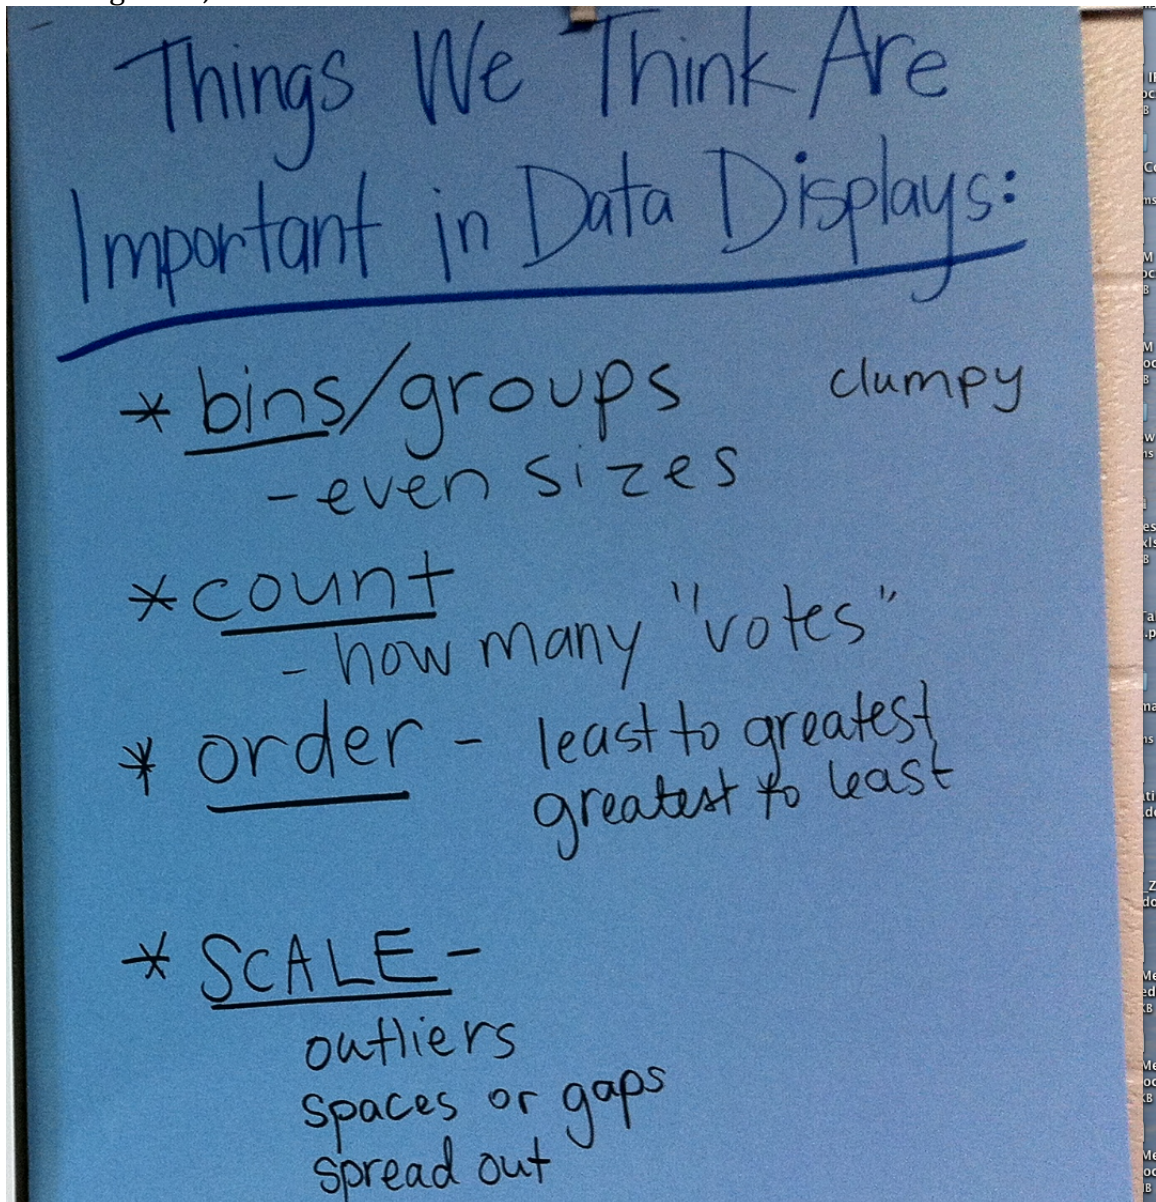 Things We Think Are
Important in Data Displays:
* bins/groups clumpy
- even sizes
* count
- how many "votes"
* order - least to greatest
greatest to least
* SCALE -
outliers
spaces or gaps
spread out